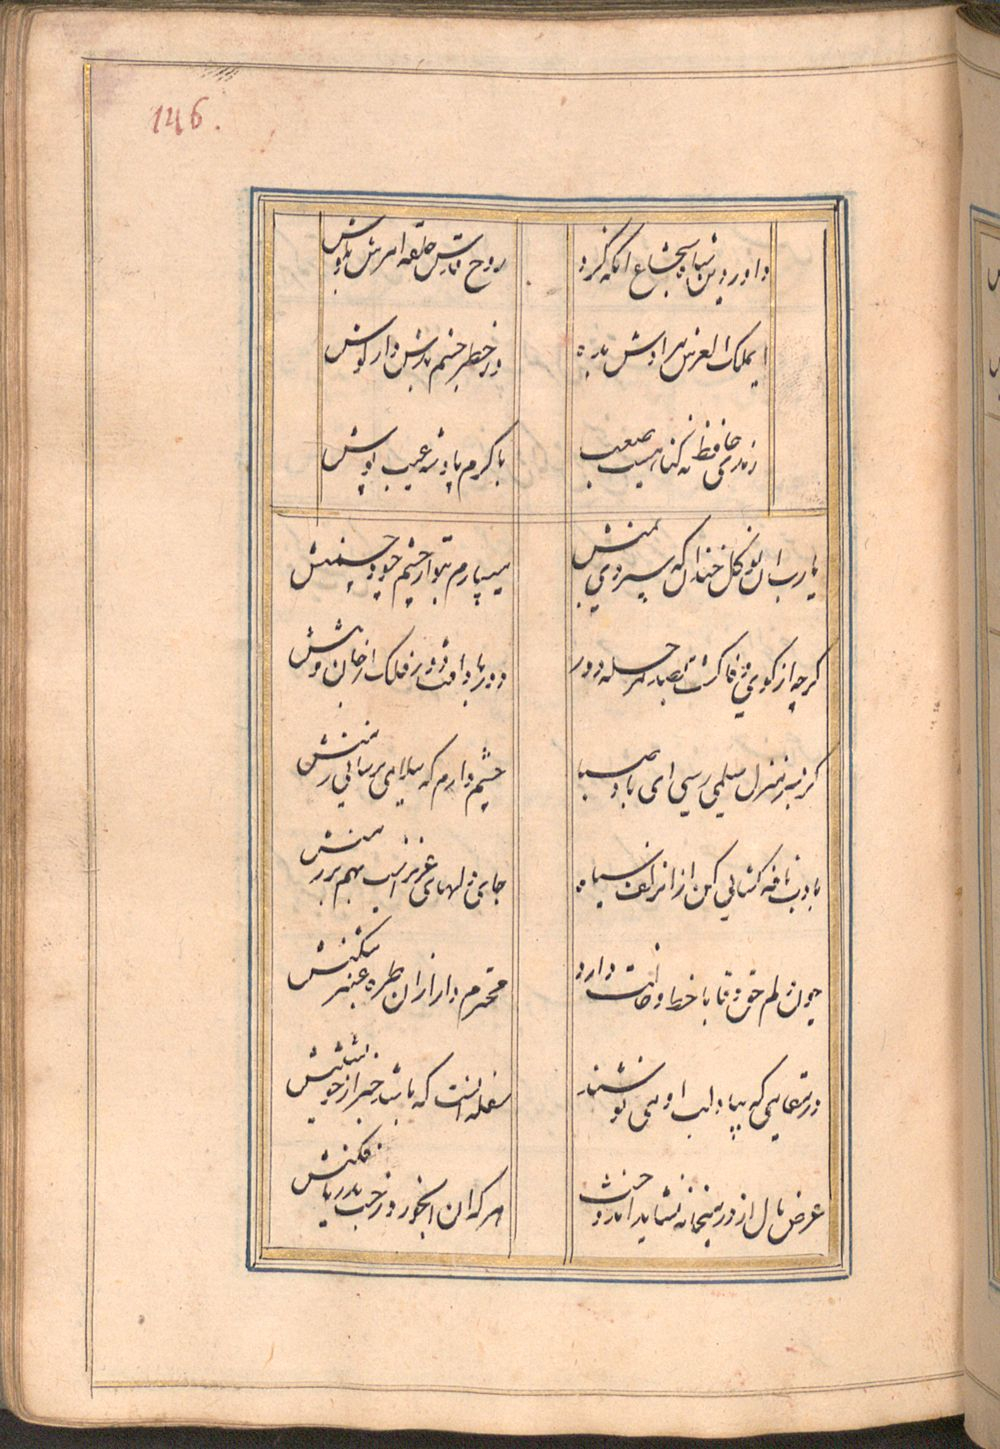 146.
داور دین شاه شجاع آنکه کرد
روح قدس حلقه امرش بگوش
ای ملک العرش مرادش بده
در خطر چشم بدش دار گوش
رندی حافظ نه گناهیست صعب
با کرم پادشه عیب پوش
یا رب آن نو گل خندان که سپردی بمنش
میسپارم بتو از چشم حسود چمنش
گرچه از کوی وفا گشت بصد مرحله دور
دور باد آفت دور فلک از جان و تنش
گر بسر منزل سلمی رسی ای باد صبا
چشم دارم که سلامی برسانی ز منش
با دب نافه گشائی کن از آن زلف سیاه
جای دلهای عزیز است بهم بر مزنش
چون دلم حق وفا با خط و خالت دارد
محترم دار در آن طره عنبر شکنش
در مقامی که بیاد لب او می نوشند
سفله آنست که باشد خبر از خویشتنش
عرض مال از در میخانه نشاید اندوخت
هر که این آب خورد رخت بدریا فکنش